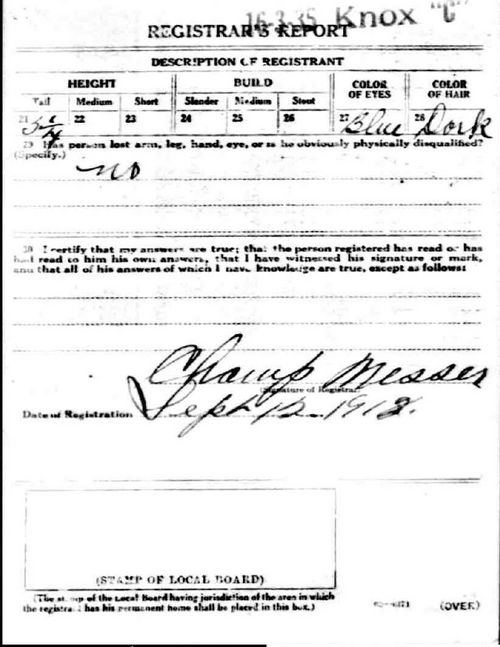 16-3-35 Knox "C"
REGISTRAR'S REPORT
DESCRIPTION OF REGISTRANT
HEIGHT BUILD COLOR OF EYES COLOR OF HAIR
Tall Medium Short Slender Medium Stout
21 22 23 24 25 26 27 Blue 28 Dark
29 Has person lost arm, leg, hand, eye, or is he obviously physically disqualified?
(Specify.)
no
30 I certify that my answers are true; that the person registered has read or has
had read to him his own answers, that I have witnessed his signature or mark,
and that all of his answers of which I have knowledge are true, except as follows:
Champ Messer
(Signature of Registrar)
Date of Registration Sept 12 1918.
(STAMP OF LOCAL BOARD)
(The stamp of the Local Board having jurisdiction of the area in which
the registrant has his permanent home shall be placed in this box.)
(OVER)